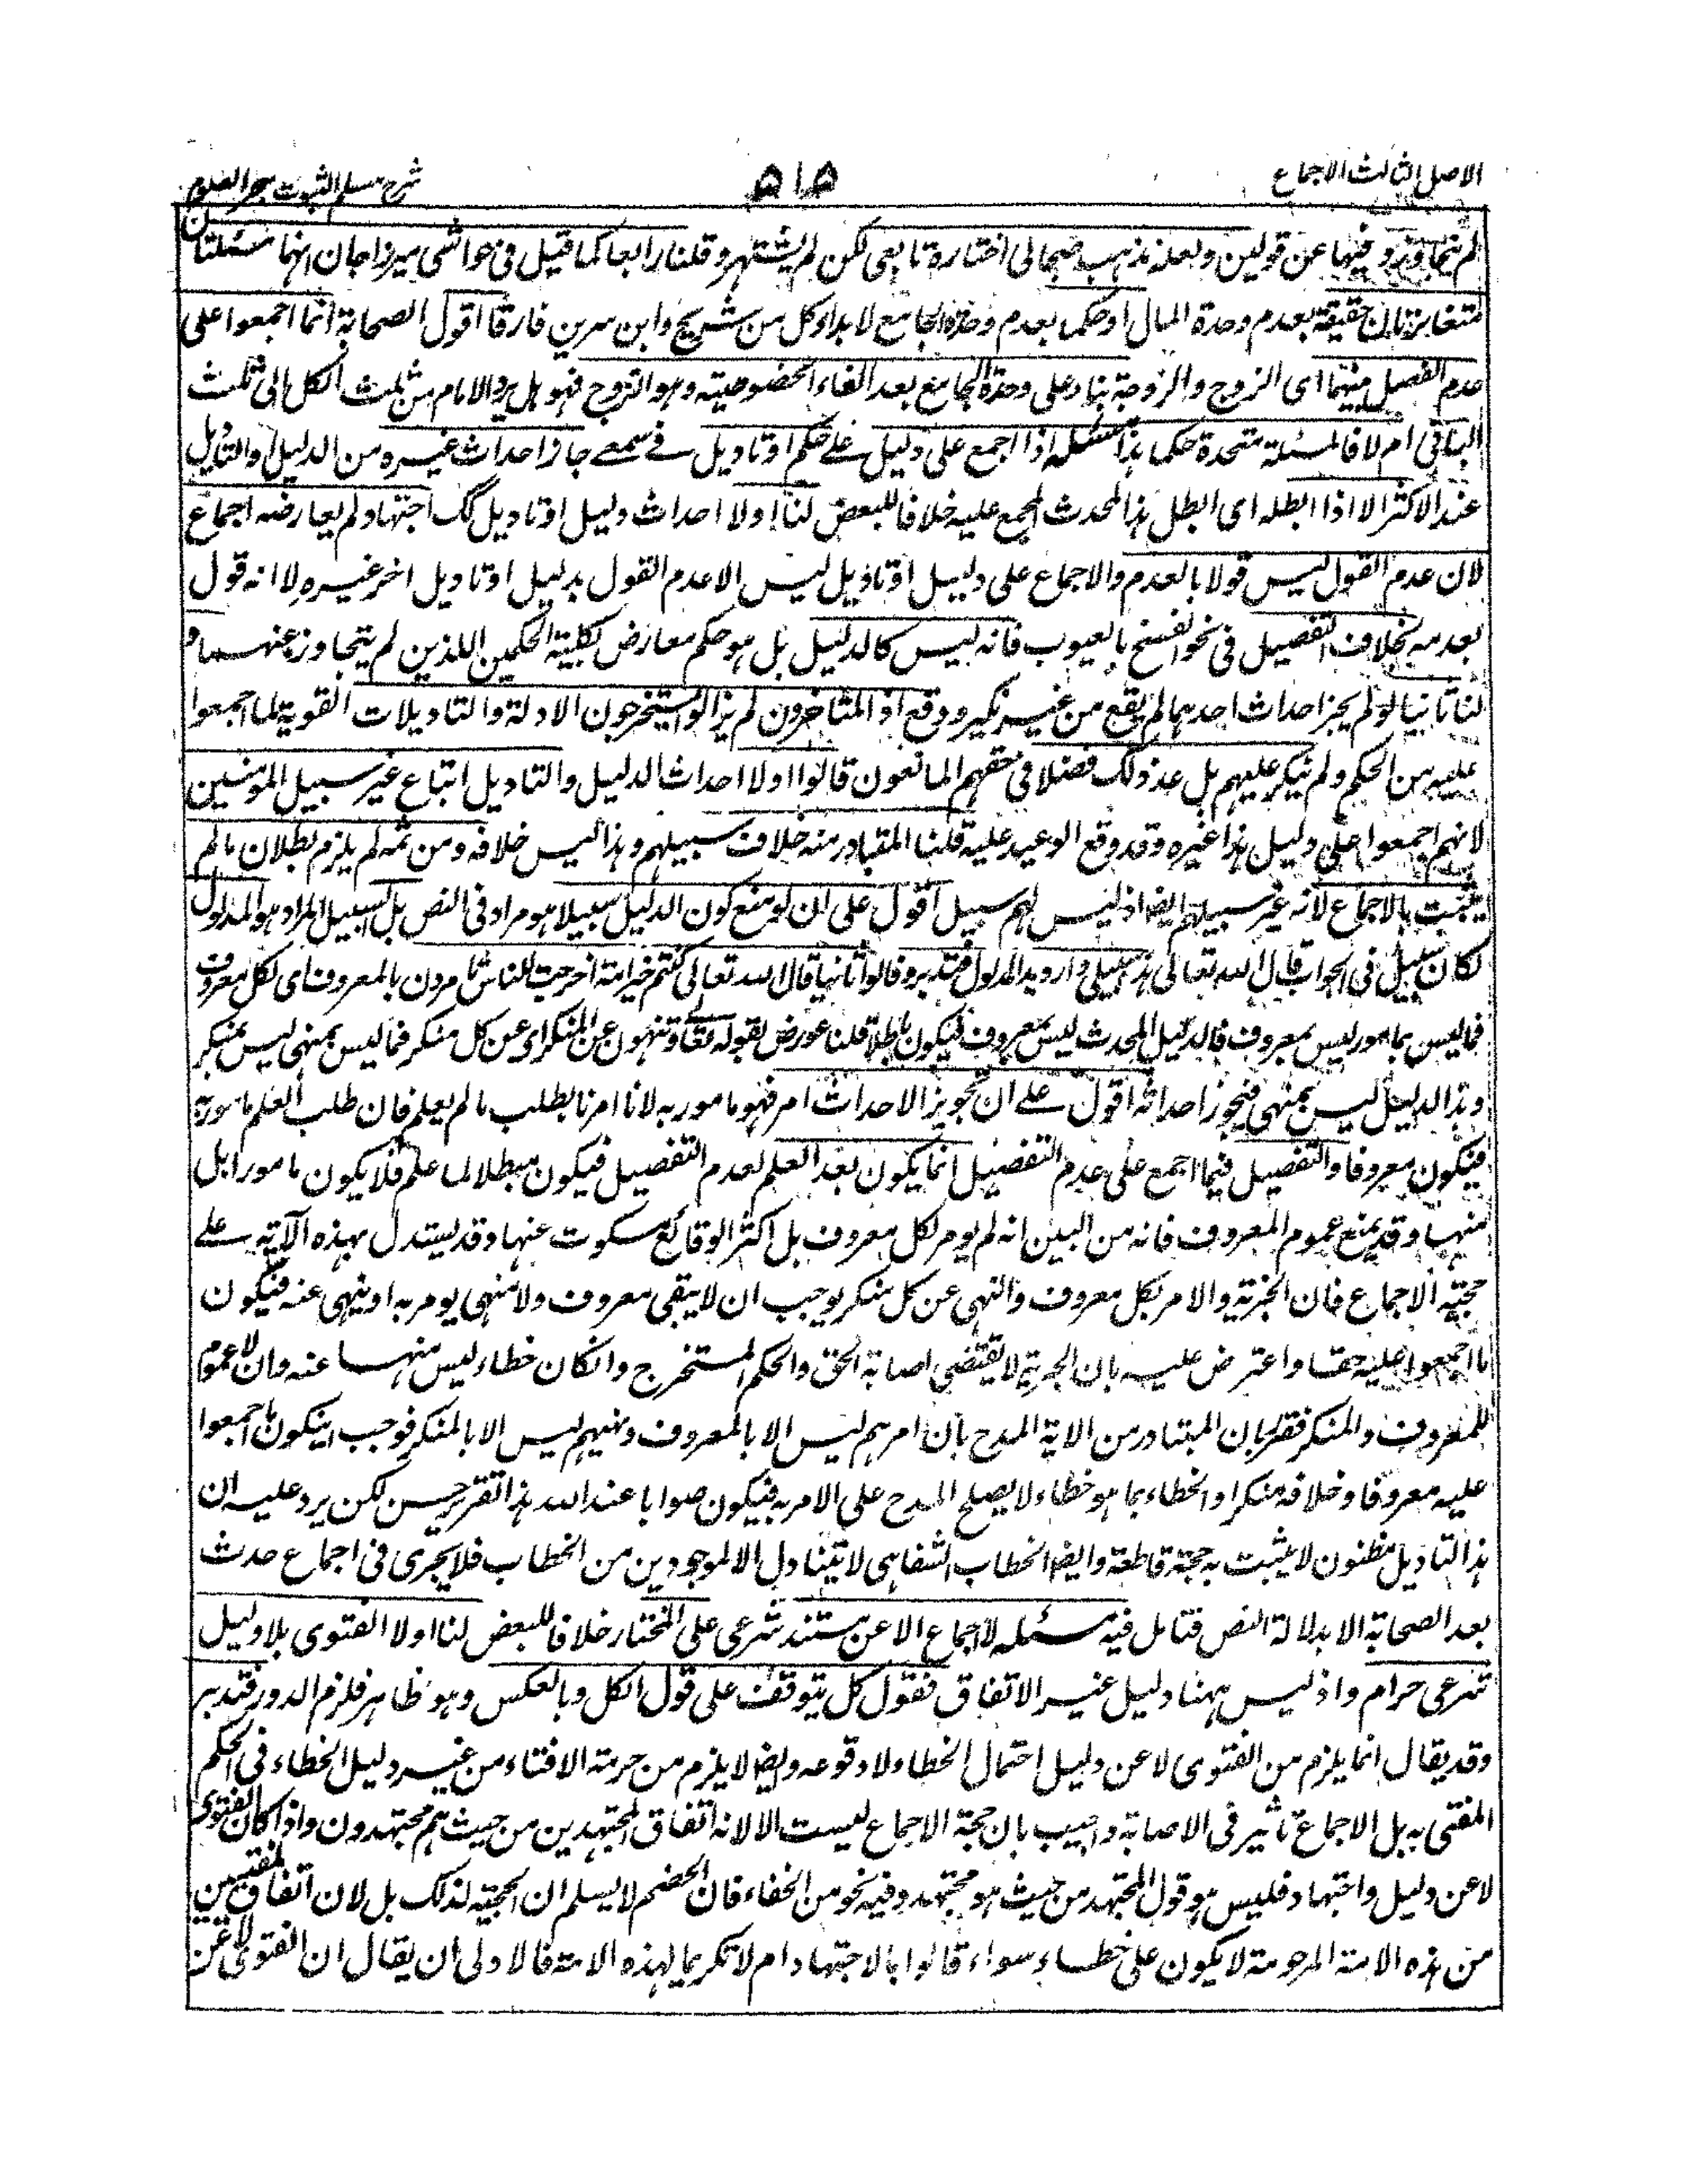 الاصل الثالث الاجماع
٥١٥
شرح مسلم الثبوت بحر العلوم
لم يتجاوزوا فيها عن قولين ولعله مذهب صحابي اختاره تابعي لكن لم يشتهر وقلنا رابعا كما قيل في حواشي ميرزا جان انهما مسئلتان
متغايرتان حقيقة بعدم وحدة المال او حكما بعدم وحدة الجامع لابداء كل من شريح وابن سرين فارقا اقول الصحابة انما اجمعوا على
عدم الفصل بينهما اى الزوج والزوجة بناء على وحدة الجامع بعد الغاء الخصوصيته وهو التزوج فهو هل يرد الامام من ثلث الكل الى ثلث
الباقى ام لا فالمسئلة متحدة حكما هذا مسئله اذا اجمع على دليل على حكم او تاويل في سمعے جاز احداث غيره من الدليل او التاويل
عند الاكثر الا اذا ابطله اى ابطل هذا المحدث المجمع عليه خلافا للبعض لنا اولا احداث دليل او تاويل ك اجتهاد لم يعارضه اجماع
لان عدم القول ليس قولا بالعدم والاجماع على دليل او تاويل ليس الا عدم القول بدليل او تاويل اخر غيره لا انه قول
بعدمه بخلاف التفصيل في نحو الفسخ بالعيوب فانه ليس كالدليل بل هو حكم معارض لكلية الحكمين اللذين لم يتجاوز عنهما و
لنا ثانيا لو لم يجز احداث احدهما لم يقع من غير نكير ووقع اذ المتاخرون لم يزالوا يستخرجون الادلة والتاويلات القوية لما اجمعوا
عليه من الحكم ولم ينكر عليهم بل عد ذلك فضلا في حقهم المانعون قالوا اولا احداث الدليل والتاويل اتباع غير سبيل المومنين
لانهم اجمعوا على دليل هذا غيره وقد وقع الوعيد عليه قلنا المتبادر منه خلاف سبيلهم وهذا ليس خلافه ومن ثمه لم يلزم بطلان ما لم
يثبت بالاجماع لانه غير سبيلهم ايضا اذ ليس لهم سبيل اقول على ان لو منع كون الدليل سبيلا هو مراد في النص بل السبيل المراد هو المدلول
لكان سبيل في الجواب قال الله تعالى هذه سبيلى واريد المدلول فتدبر وقالوا ثانيا قال الله تعالى كنتم خير امة اخرجت للناس تامرون بالمعروف اى لكل معروف
فما ليس بمامور ليس بمعروف فالدليل المحدث ليس بمعروف فيكون باطلا قلنا عورض بقوله تعالى وتنهون عن المنكر اى عن كل منكر فما ليس بمنهى ليس بمنكر
وهذا الدليل ليس بمنهى فيجوز احداثه اقول على ان تجويز الاحداث امر فهو مامور به لانا امرنا بطلب ما لم يعلم فان طلب العلم مامور به
فيكون معروفا والتفصيل فيما اجمع على عدم التفصيل انما يكون بعد العلم لعدم التفصيل فيكون مبطلا لما علم فلا يكون مامورا بل
منهيا وقد يمنع عموم المعروف فانه من البين انه لم يومر لكل معروف بل اكثر الوقائع سكوت عنها وقد يستدل بهذه الآية على
حجية الاجماع فان الخيرية والامر بكل معروف والنهى عن كل منكر يوجب ان لا يبقى معروف ولا منهى يومر به او ينهى عنه فيكون
ما اجمعوا عليه حقا واعترض عليه بان الخيرية لا يقتضى اصابة الحق والحكم المستخرج وان كان خطاء ليس منهيا عنه وان لا عموم
للمعروف والمنكر فقرر بان المتبادر من الاية المدح بان امرهم ليس الا بالمعروف ونهيهم ليس الا بالمنكر فوجب ان يكون ما اجمعوا
عليه معروفا وخلافه منكرا والخطاء بما هو خطاء لا يصلح المدح على الامر به فيكون صوابا عند الله هذا تقرير حسن لكن يرد عليه ان
هذا التاويل مظنون لا يثبت به حجة قاطعة وايضا الخطاب الشفاهى لا يتناول الا الموجودين من الخطاب فلا يجرى في اجماع حدث
بعد الصحابة الا بدلالة النص فتامل فيه مسئله لا اجماع الا عن مستند شرعى على المختار خلافا للبعض لنا اولا الفتوى بلا دليل
شرعى حرام واذ ليس ههنا دليل غير الاتفاق فقول كل يتوقف على قول الكل وبالعكس وهو ظاهر فلزم الدور فتدبر
وقد يقال انما يلزم من الفتوى لا عن دليل احتمال الخطا ولا وقوعه وايضا لا يلزم من حرمة الافتاء من غير دليل الخطاء في الحكم
المفتى به بل الاجماع تاثير في الاصابة واجيب بان حجة الاجماع ليست الا لانه اتفاق المجتهدين من حيث هم مجتهدون واذا كان الفتوى
لا عن دليل واجتهاد فليس هو قول المجتهد من حيث هو مجتهد وفيه نحو من الخفاء فان الخصم لا يسلم ان الحجية لذلك بل لان اتفاق المفتيين
من هذه الامة المرحومة لا يكون على خطاء سواء قالوا بالاجتهاد ام لا تكريما لهذه الامة فالاولى ان يقال ان الفتوى لا عن